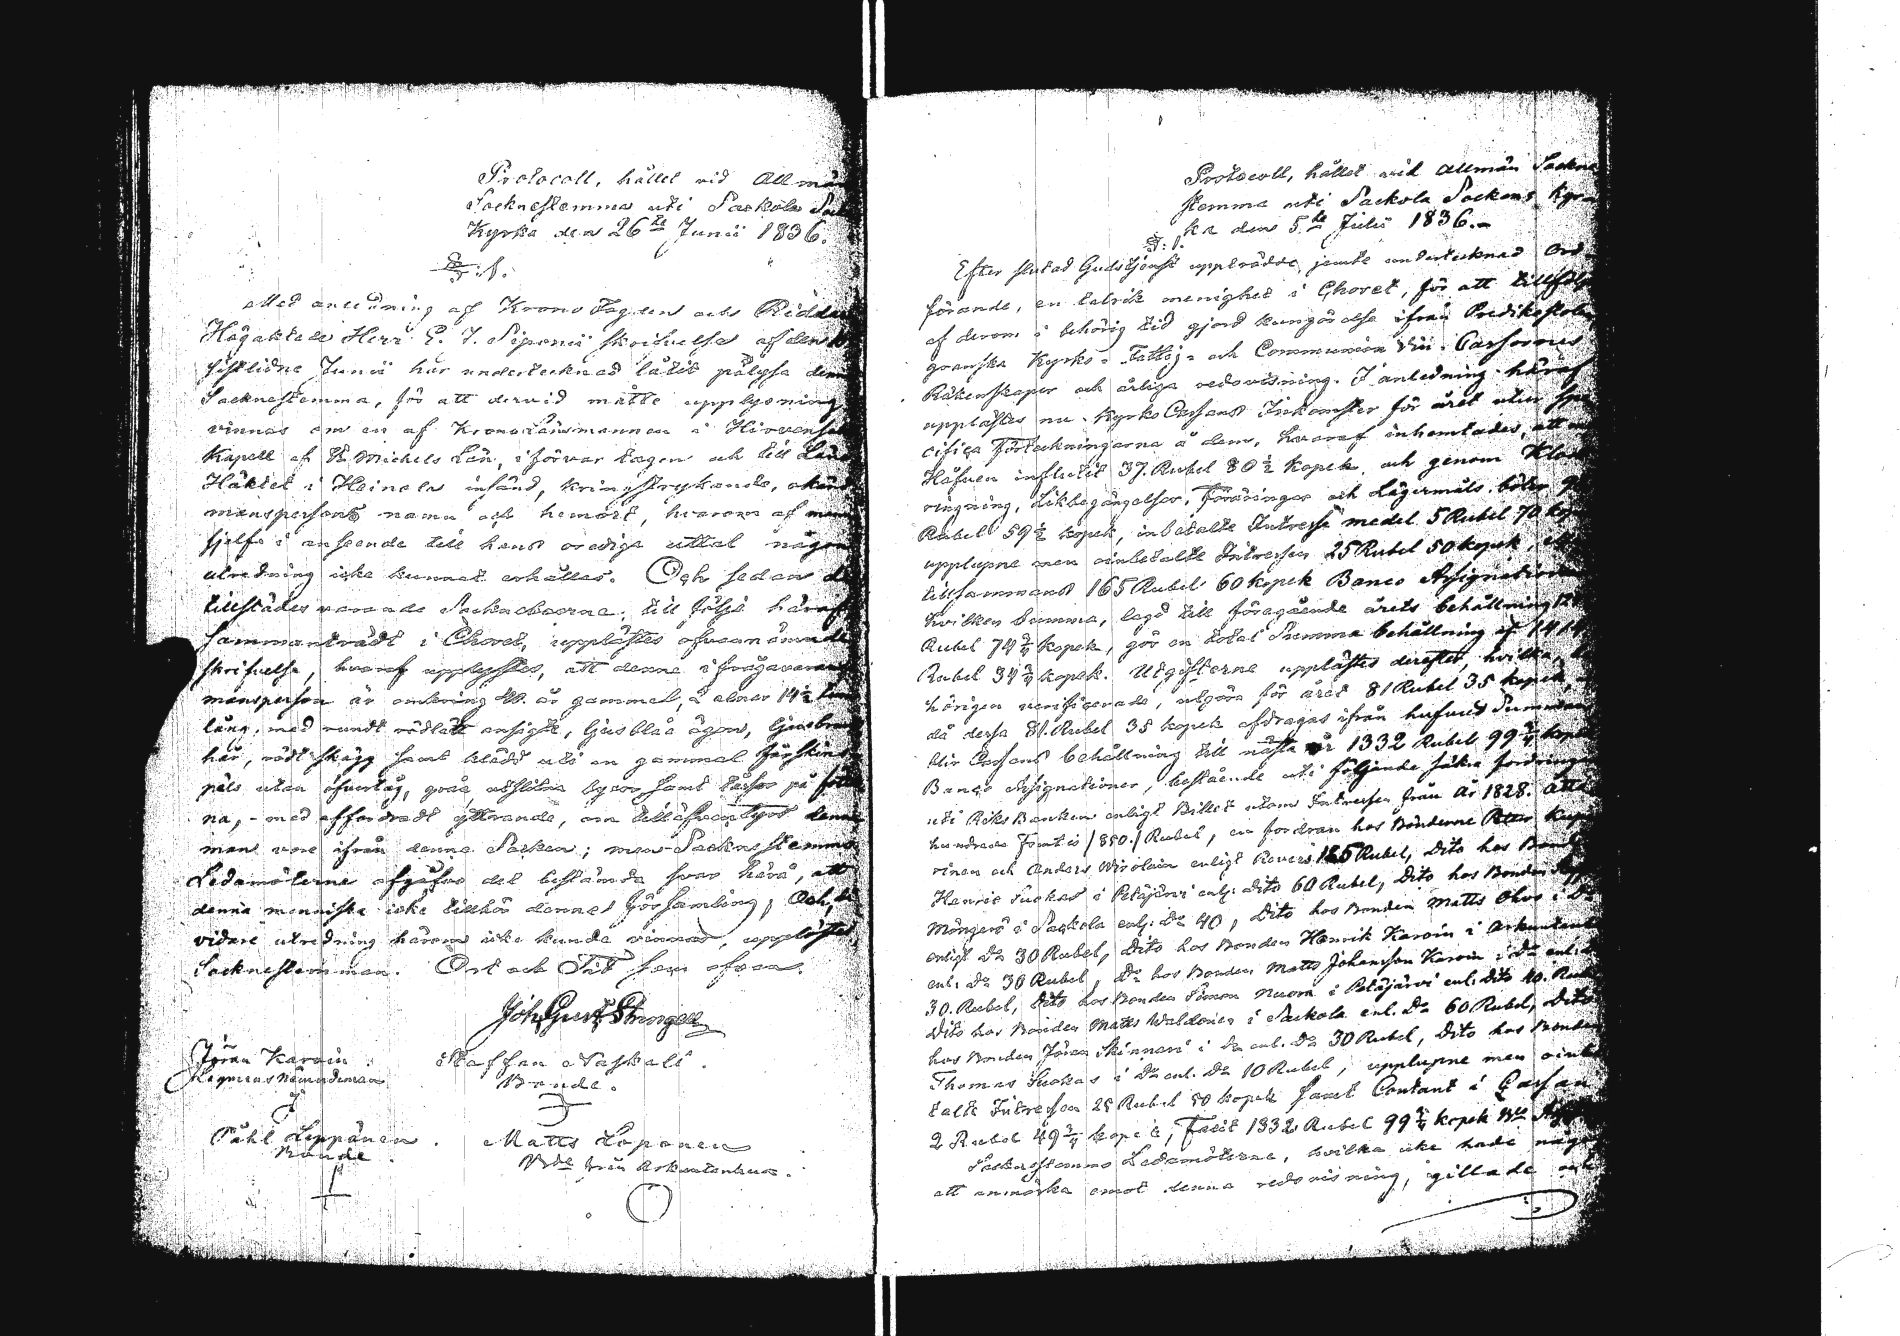 Protocoll, hållet vid Allmän
Socknestemma uti Sackola Sock
Kyrka den 26te Junii 1836.
§: 1.
Med anledning af Krono Fogden och Riddar
Högaktade Herr E. J. Siponii skrifvelse af den
sistlidne Junii har undertecknad låtit pålysa denn
Socknestemma, för att dervid måtte upplysning
vinnas om en af Krono Länsmannen i Hirvens
Kapell af St Michels Län, i förvar tagen och till Läne
Häktet i Heinola insänd, kringstrykande, okänd
manspersons namn och hemort, hvarom af man
sjelf i anseende till hans orediga uttal någon
utredning icke kunnat erhållas. Och sedan de
tillstädesvarande Sockneboerne, till följe häraf
sammanträdt i Choret, upplästes ofvannämnde
skrifvelse, hvaraf upplystes, att denne ifrågavarande
mansperson är omkring 40. år gammal, 2 alnar 14½ tum
lång, med rundt rödlätt ansigte, ljusblåa ögon, ljusbrunt
hår, rödt skägg samt klädd uti en gammal fårskins
päls utan öfvertåg, gråa utslitna byxor samt tåssor på fötter
na, - med affordradt yttrande, om till äfventyrs denne
man vore ifrån denna Socken; men Sockne stemmo
Ledamöterne afgåfvo det bestämda svar härå, att
denna menniska icke tillhör denna Församling; Och, då
vidare utredning härom icke kunde vinnas, upplöstes
Socknestemman. Ort och Tid som ofvan.
Joh. Gust. Strengell
Jöran Karvin Staffan Naskali.
Legmeras Nämndeman Bonde.
Påhl Leppänen. Matts Loponen
Bonde. Bde från Arkuntanhuus.
Protocoll, hållet vid Allmän Sockne
stemma uti Sackola Sockens Kyr
ka den 5te Julii 1836.-
§: 1.
Efter slutad Gudstjenst uppträdde, jemte undertecknad Ord
förande, en talrik menighet i Choret, för att tillfölje
af derom i behörig tid gjord kungörelse ifrån Predikostolen
granska Kyrko- Fattig- och Communion Vin Cassornes
Räkenskaper och årliga redovisning. I anledning häraf
upplästes nu Kyrko Cassans Inkomster för året utur spe
cifiqa Förteckningarna å dem, hvaraf inhemtades, att
Håfven influtit 37. Rubel 80½ kopek, och genom Klock
ringning, Likbegängelser, Föräringar och Lägermåls böter
Rubel 59½ kopek, inbetalte Intresse medel 5 Rubel 70 kop
upplupne men oinbetalte Intressen 25 Rubel 50 kopek,
tillsammans 165 Rubel 60 kopek Banco Assignationer
hvilken Summa, lagd till föregående årets behållning 12
Rubel 74¾ kopek, gör en total Summa behållning af 1414
Rubel 34¾ kopek. Utgifterne upplästes derefter, hvilka, be
hörigen verificerade, utgöra för året 81 Rubel 35 kopek,
då dessa 81. Rubel 35 kopek afdragas ifrån hufvud Summan
blir Cassans behållning till nästa år 1332 Rubel 99¾ kopek
Banco Assignationer, bestående uti följande säkra fordringar
uti Riks Banken enligt Billet utom Intressen från år 1828. åtta
hundrade Femtio /850./ Rubel, en fordran hos Bönderne Peter
rinen och Anders Wirolain enligt Revers 125 Rubel, Dito hos Bonden
Henric Suckas i Petäjärvi enl: Dito 60 Rubel, Dito hos Bonden
Möngerö i Sackola enl: Do 40, Dito hos Bonden Matts Ohvo i Do
enligt Do 30 Rubel, Dito hos Bonden Henrik Karvin i Arkuntanh
enl: Do 30 Rubel, Do hos Bonden Matts Johansson Karvin i Do enl:
30. Rubel, Dito hos Bonden Simon Nuora i Petäjärvi enl: Dito 40. Rub
Dito hos Bonden Matts Waldonen i Sackola enl. Do 60 Rubel, Dito
hos Bonden Jöran Skinnari i Do enl. Do 30 Rubel, Dito hos Bonden
Thomas Suokas i Do enl. Do 10 Rubel, upplupne men oinbe
talte Intressen 25 Rubel 50 kopek samt Contant i Cassan
2 Rubel 49¾ kopek, Facit 1332 Rubel 99¾ kopek Bco
Socknestemmo Ledamöterne, hvilka icke hade något
att anmärka emot denna redovisning, gillade och